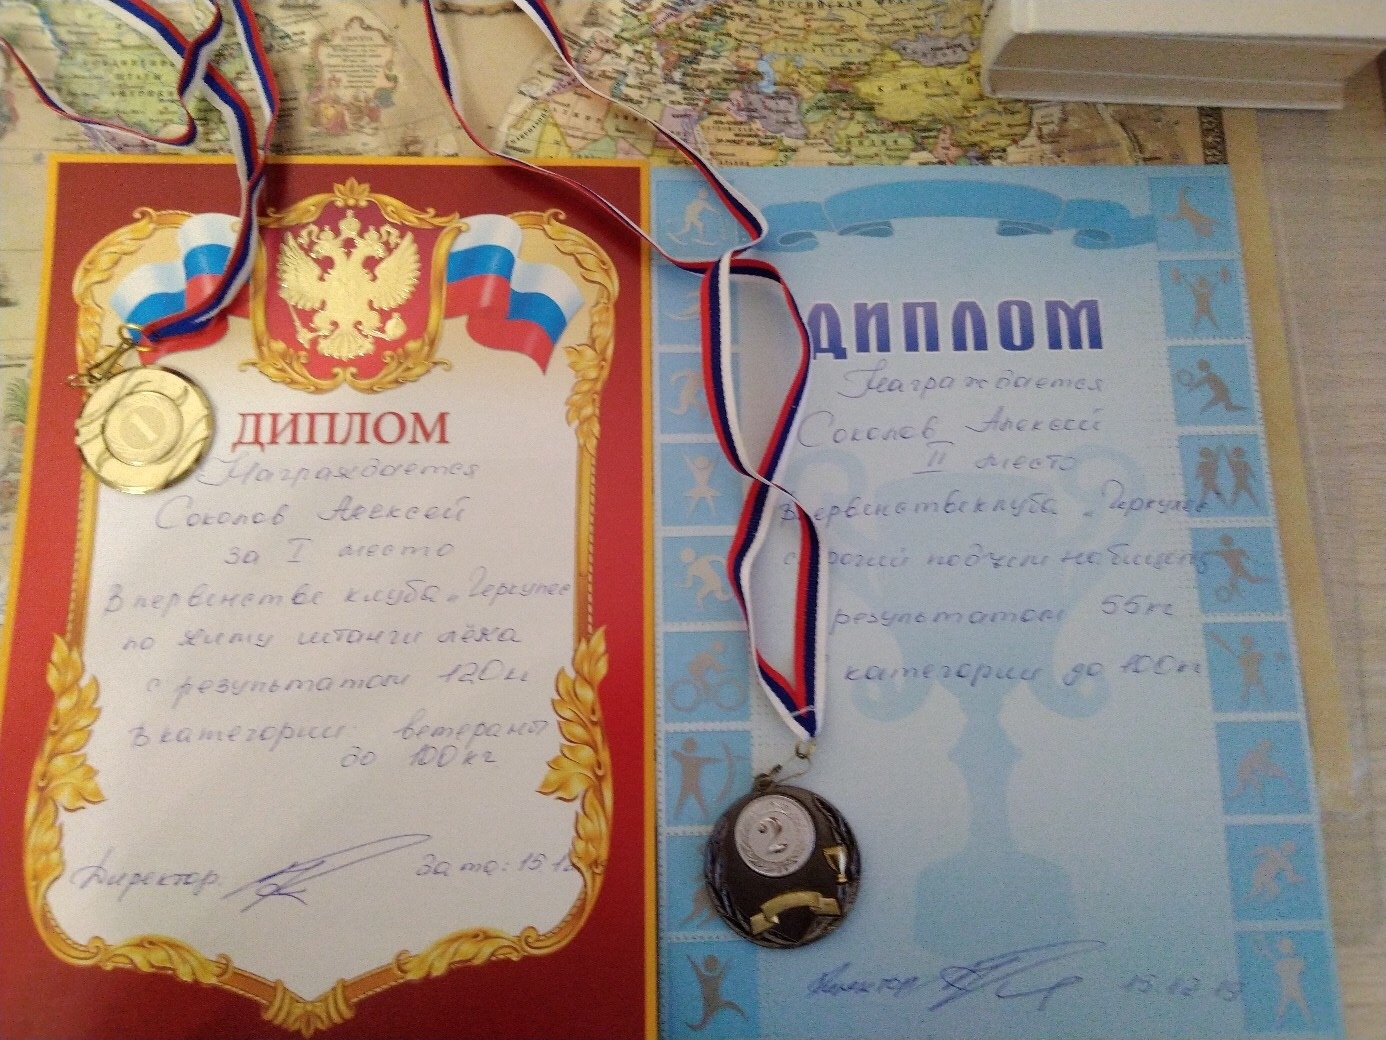 ДИПЛОМ
Награждается
Соколов Алексей
за I место
В первенстве клуба „Геркулес
по жиму штанги лёжа
с результатом 120кг
В категории: ветераны
до 100кг
Директор
Дата: 15.12
1
ДИПЛОМ
Награждается
Соколов Алексей
II место
в первенстве клуба „Геркулес
строгий подъем на бицепс
результатом 55кг
категории до 100кг
Директор
15.12.19
2